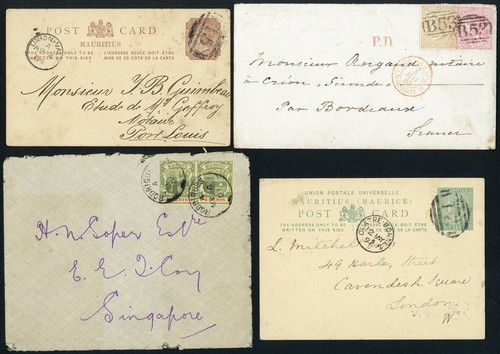 POST CARD
MAURITIUS
THE ADDRESS ONLY TO BE
WRITTEN ON THIS SIDE
L'ADRESSE SEULE DOIT ÊTRE
MISE DE CE CÔTÉ DE LA CARTE
Monsieur J. B. Guimbeau
Etude de Mr Geffroy
Notaire
Port Louis
B53
B53
P.D.
Monsieur notaire
à Créon, Gironde
Par Bordeaux
France
H. N. Soper Esqre
E. E. J. Coy
Singapore
UNION POSTALE UNIVERSELLE
MAURITIUS (MAURICE)
POST CARD
THE ADDRESS ONLY TO BE
WRITTEN ON THIS SIDE
L'ADRESSE SEULE DOIT ÊTRE
MISE DE CE CÔTÉ DE LA CARTE
L. Mitchell
49 Harley Street
Cavendish Square
London
W.